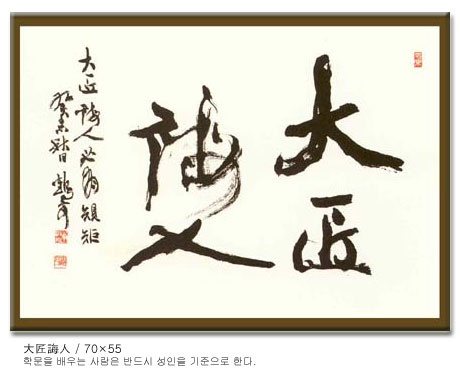 大匠
誨人
大匠誨人必規矩
癸未秋日
大匠誨人 / 70×55
학문을 배우는 사람은 반드시 성인을 기준으로 한다.